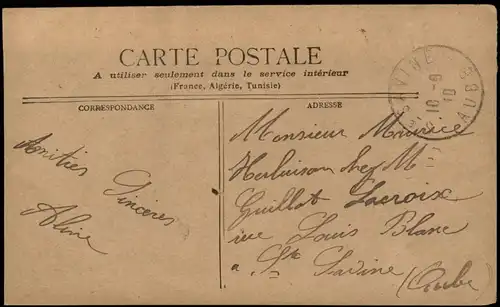 CARTE POSTALE
A utiliser seulement dans le service intérieur
(France, Algérie, Tunisie)
CORRESPONDANCE
ADRESSE
Amitiés
Sincères
Aline
Monsieur Maurice
Herluison chez M
Guillot Lacroix
rue Louis Blanc
a Ste Savine
(Aube
SAVINE
10 - 6
10
AUBE